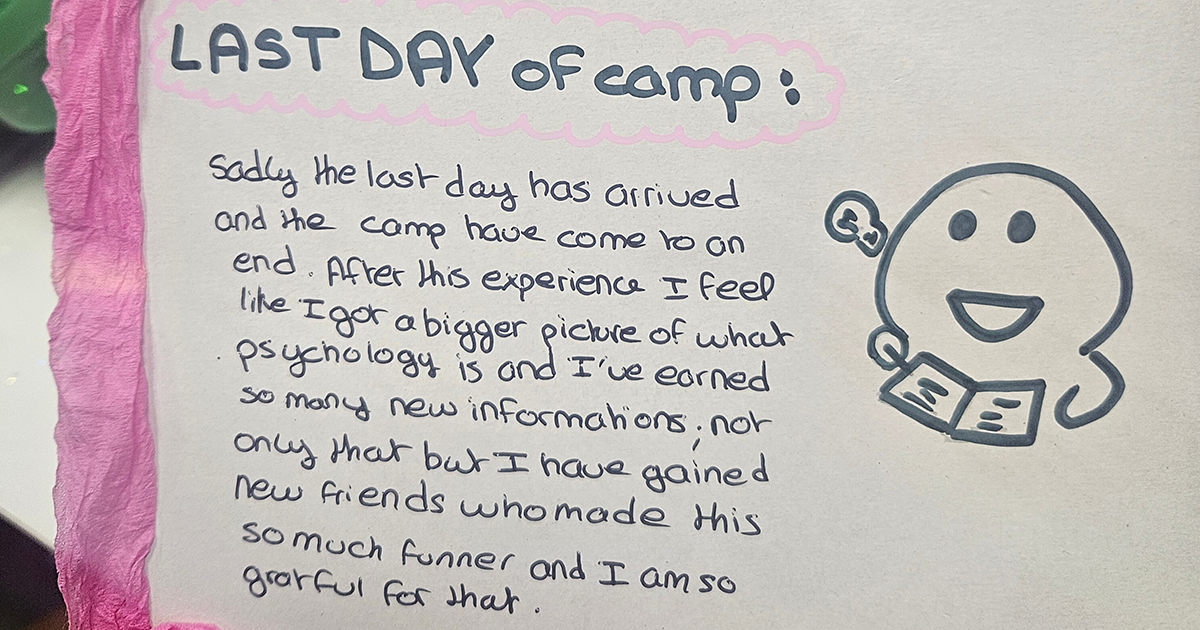 LAST DAY of camp:
Sadly the last day has arrived
and the camp have come to an
end. After this experience I feel
like I got a bigger picture of what
psychology is and I've earned
so many new informations, not
only that but I have gained
new friends who made this
so much funner and I am so
gratful for that.